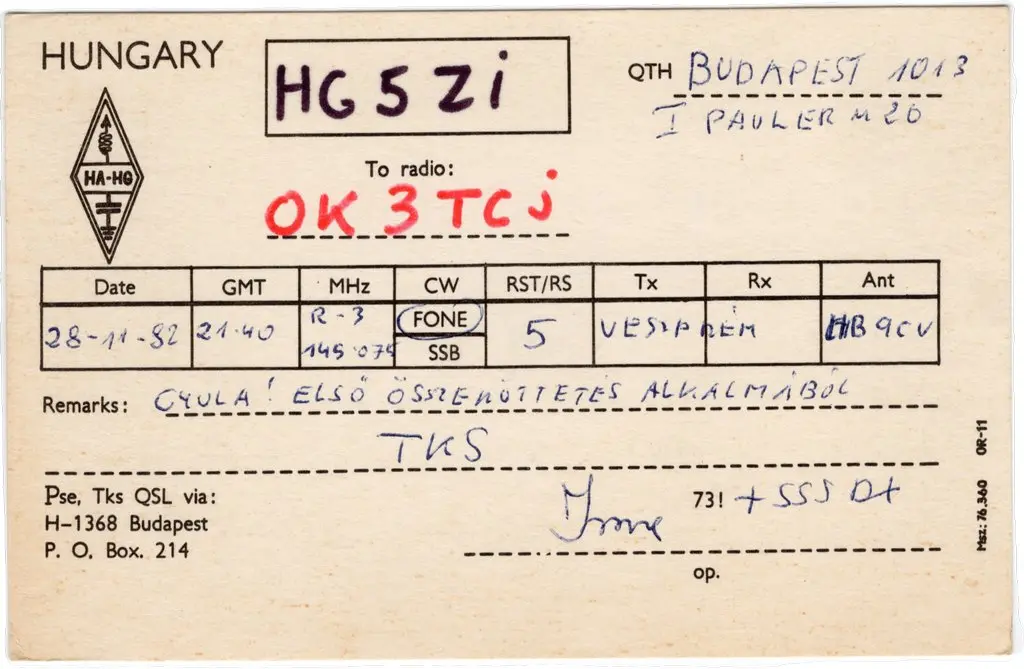 HUNGARY
HG5Zi
QTH BUDAPEST 1013
I PAULER u 20
HA-HG
To radio:
OK3TCj
Date GMT MHz CW RST/RS Tx Rx Ant
28-11-82 21.40 R-3 145.075 FONE SSB 5 VESZPRÉM HB9CV
Remarks: GYULA! ELSŐ ÖSSZEKÖTTETÉS ALKALMÁBÓL
TKS
Pse, Tks QSL via:
73! + SSS DX
H-1368 Budapest
P. O. Box. 214
op.
Msz.: 76.360 OR-11